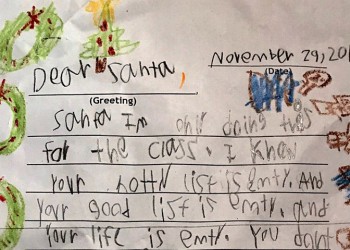 November 29, 20
(Date)
Dear Santa,
(Greeting)
Santa Im only doing this
for the class. I know
your notty list is emty. And
your good list is emty. and
Your life is emty. You dont